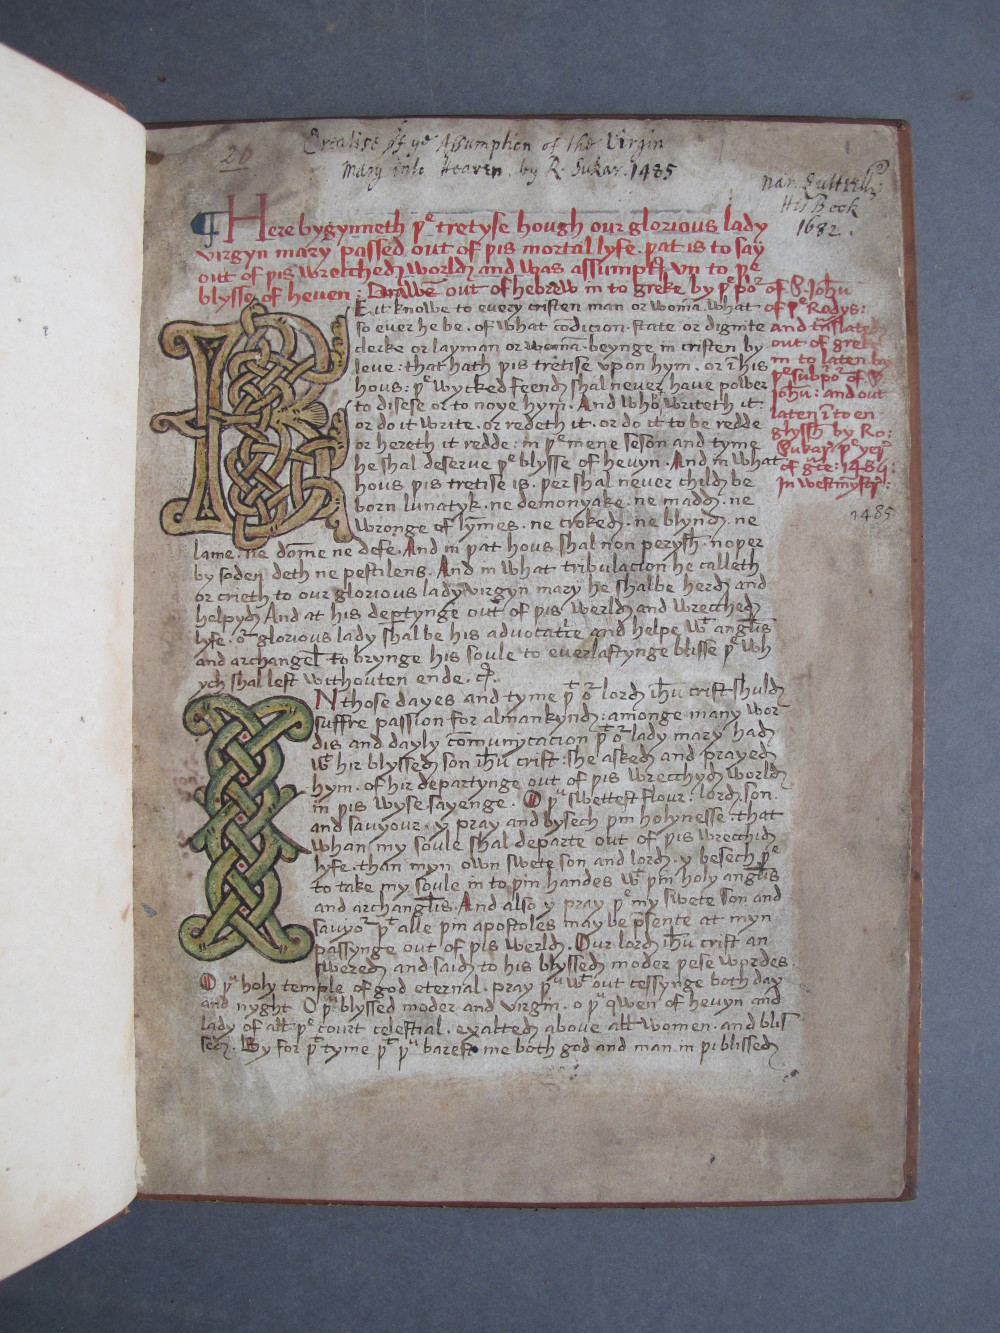 20
Treatise of ye Assumption of the Virgin
Mary into Heaven. by R. Sukar. 1485
Nar. Luttrell:
His Book
1682.
¶ Here bygynneth þe tretyse hough our glorious lady
virgyn mary passed out of þis mortal lyfe. þat is to say
out of þis wrecched world and was assumpt vn to þe
blysse of heven: Drawen out of hebrew in to greke by þe pͦoͬ of S. John̄
of þe Rodys:
and trāslated
out of greke
in to laten by
þe subpͦoͬ of S.
John̄: and out
laten ī to en
glyssh by Ro:
Sukar: þe yer
of gͣce: 1484:
In westmystr:
1485
BE it knowe to every cristen man or womā. what
so ever he be. of what cōdicion. state or dignite
clerke or layman or womā. beynge in cristen by
love: that hath þis tretise vpon hym. or ī his
hous: þe wycked feend shal never have power
to disese or to noye hym. And who writeth it
or do it write. or redeth it. or do it to be redde
or hereth it redde: in þe mene seson and tyme
he shal deserve þe blysse of hevyn. And in what
hous þis tretise is. þer shal never child be
born lunatyk. ne demonyake. ne madd. ne
wronge of lymes. ne croked. ne blynd. ne
lame. ne dome ne defe. And in þat hous shal non perysh. noþer
by soden deth ne pestilens. And in what tribulacion he calleth
or crieth to our glorious lady virgyn mary he shalbe herd and
helpyd And at his deptynge out of þis werld and wrecched
lyfe. oͬ glorious lady shalbe his advocatrice and helpe wͭ anglis
and archangel to brynge his soule to everlastynge blisse þe wh
ych shal lest withouten ende.
IN those dayes and tyme þͭ oͬ lord ihu crist shuld
suffre passion for al mankynd: amonge many wor
dis and dayly cōmunycacion þͭ oͬ lady mary had
wͭ hir blyssed son ihu crist: she asked and prayed
hym. of hir departynge out of þis wrecchyd world
in þis wyse sayenge. O þͧ swettest flour: lord. son.
and savyour. y pray and bysech þin holynesse. that
whan my soule shal departe out of þis wrecchid
lyfe. than myn own swete son and lord. y besech þe
to take my soule in to þin handes wͭ þin holy anglis
and archanglis. And also y pray þe my swete son and
savyoͬ þͭ alle þin apostoles may be psente at myn
passynge out of þis werld. Our lord ihu crist an
swered and said to his blyssed moder þese wordes.
O þͧ holy temple of god eternal. pray þͧ wͭ out cessynge both day
and nyght O þͧ blyssed moder and virgin. o þͧ qwen of hevyn and
lady of all þe court celestial. exalted above all women. and blis
sed. By for þͭ tyme þͭ þͧ barest me both god and man. in þi blissed